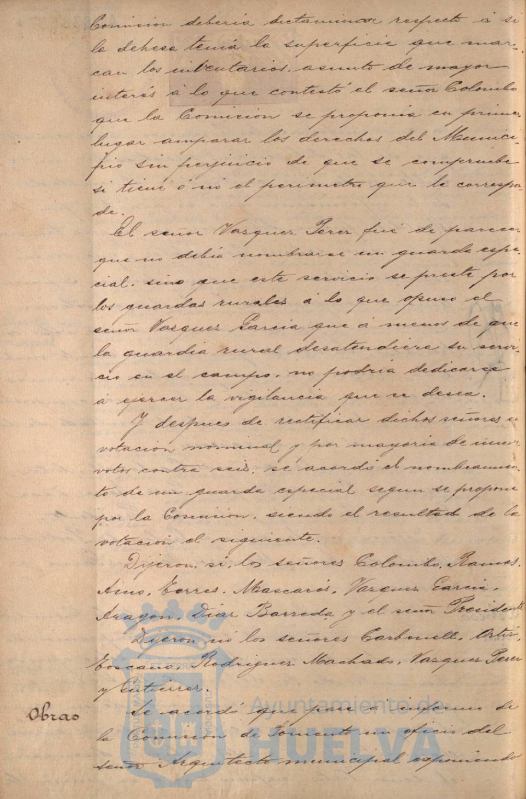 Comision deberia dictaminar respecto á si
la dehesa tenía la superficie que mar-
can los inventarios, asunto de mayor
interés á lo que contestó el señor Colombo
que la Comision se proponia en primer
lugar amparar los derechos del Munici-
pio sin perjuicio de que se compruebe
si tiene ó nó el perimetro que le correspon
de.
El señor Vazquez Perez fué de parecer
que no debia nombrarse un guarda espe-
cial, sino que este servicio se preste por
los guardas rurales á lo que opuso el
señor Vazquez Garcia que á menos de que
la guardia rural desatendiera su servi-
cio en el campo, no podria dedicarse
á ejercer la vigilancia que se desea.
Y despues de rectificar dichos señores en
votacion nominal y por mayoria de nueve
votos contra seis, se acordó el nombramien
to de un guarda especial segun se propone
por la Comision, siendo el resultado de la
votacion el siguiente.
Dijeron, si, los señores Colombo, Ramos,
Amo, Torres, Mascarós, Vazquez Garcia,
Aragon, Diaz Barreda y el señor Presidente
Dijeron nó los señores Carbonell, Ortiz,
Toscano, Rodriguez Machado, Vazquez Perez
y Gutierrez.
Obras
Se acordó que pase a informe de
la Comision de Fomento un oficio del
señor Arquitecto municipal exponiendo
Ayuntamiento de
HUELVA